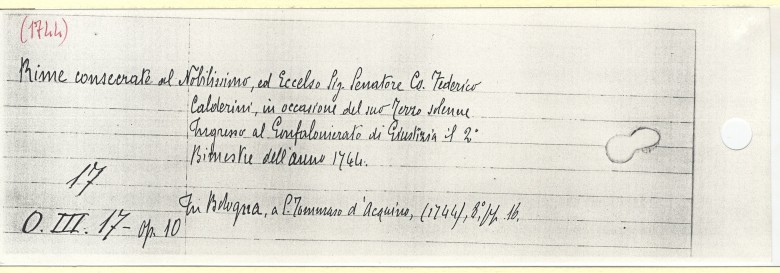 (1744)
Rime consecrate al Nobilissimo, ed Eccelso Sig. Senatore Co. Federico
Calderini, in occasione del suo Terzo solenne
Ingresso al Gonfalonierato di Giustizia il 2°
Bimestre dell'anno 1744.
17
In Bologna, a S. Tommaso d'Acquino, (1744), 8°, pp. 16.
O. III. 17 - Op. 10